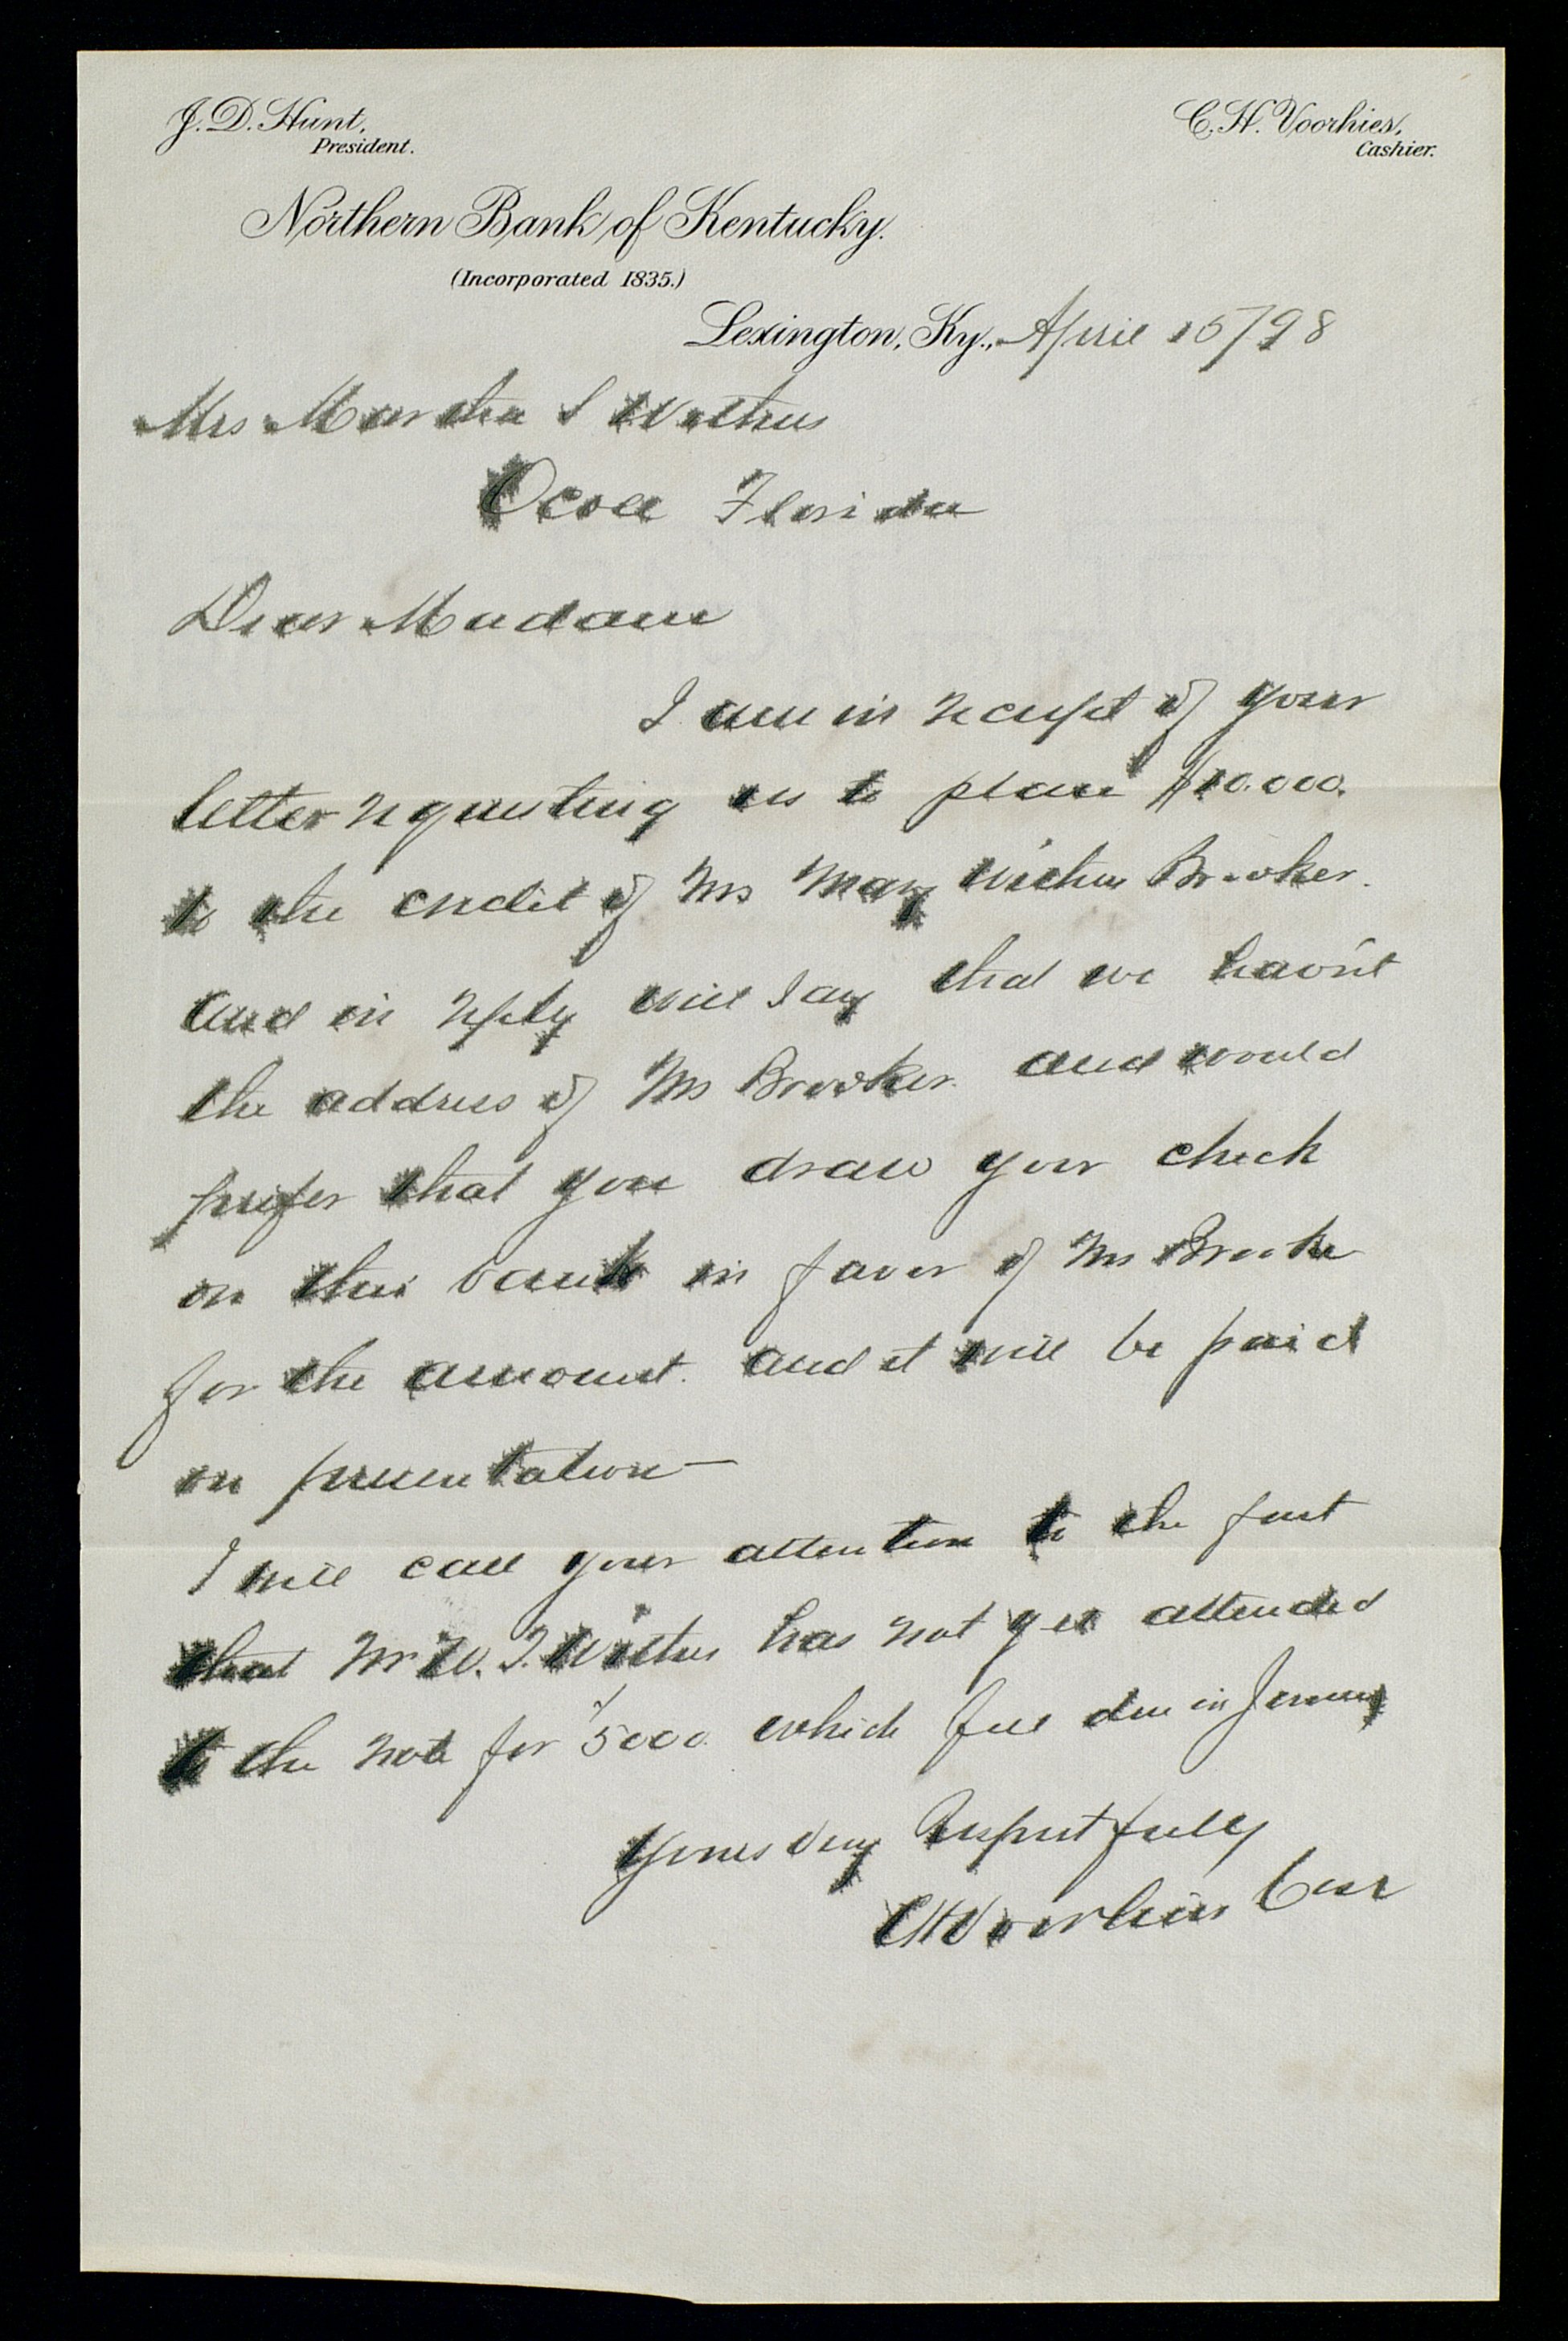 J. D. Hunt,
President.
C. H. Voorhies,
Cashier.
Northern Bank of Kentucky.
(Incorporated 1835.)
Lexington, Ky., April 15/98
Mrs Martha S Withers
Ocoee Florida
Dear Madam
I am in receipt of your
letter requesting us to place $10.000.
to the credit of Mrs Mary Withers Brooker.
and in reply will say that we hav'nt
the address of Mrs Brooker. and would
prefer that you draw your check
on this bank in favor of Mrs Brooker
for the amount. and it will be paid
on presentation—
I will call your attention to the fact
that Mr W. T. Withers has not yet attended
to the note for $5000. which fell due in January
Yours very Respectfully
CH Voorhies Cas